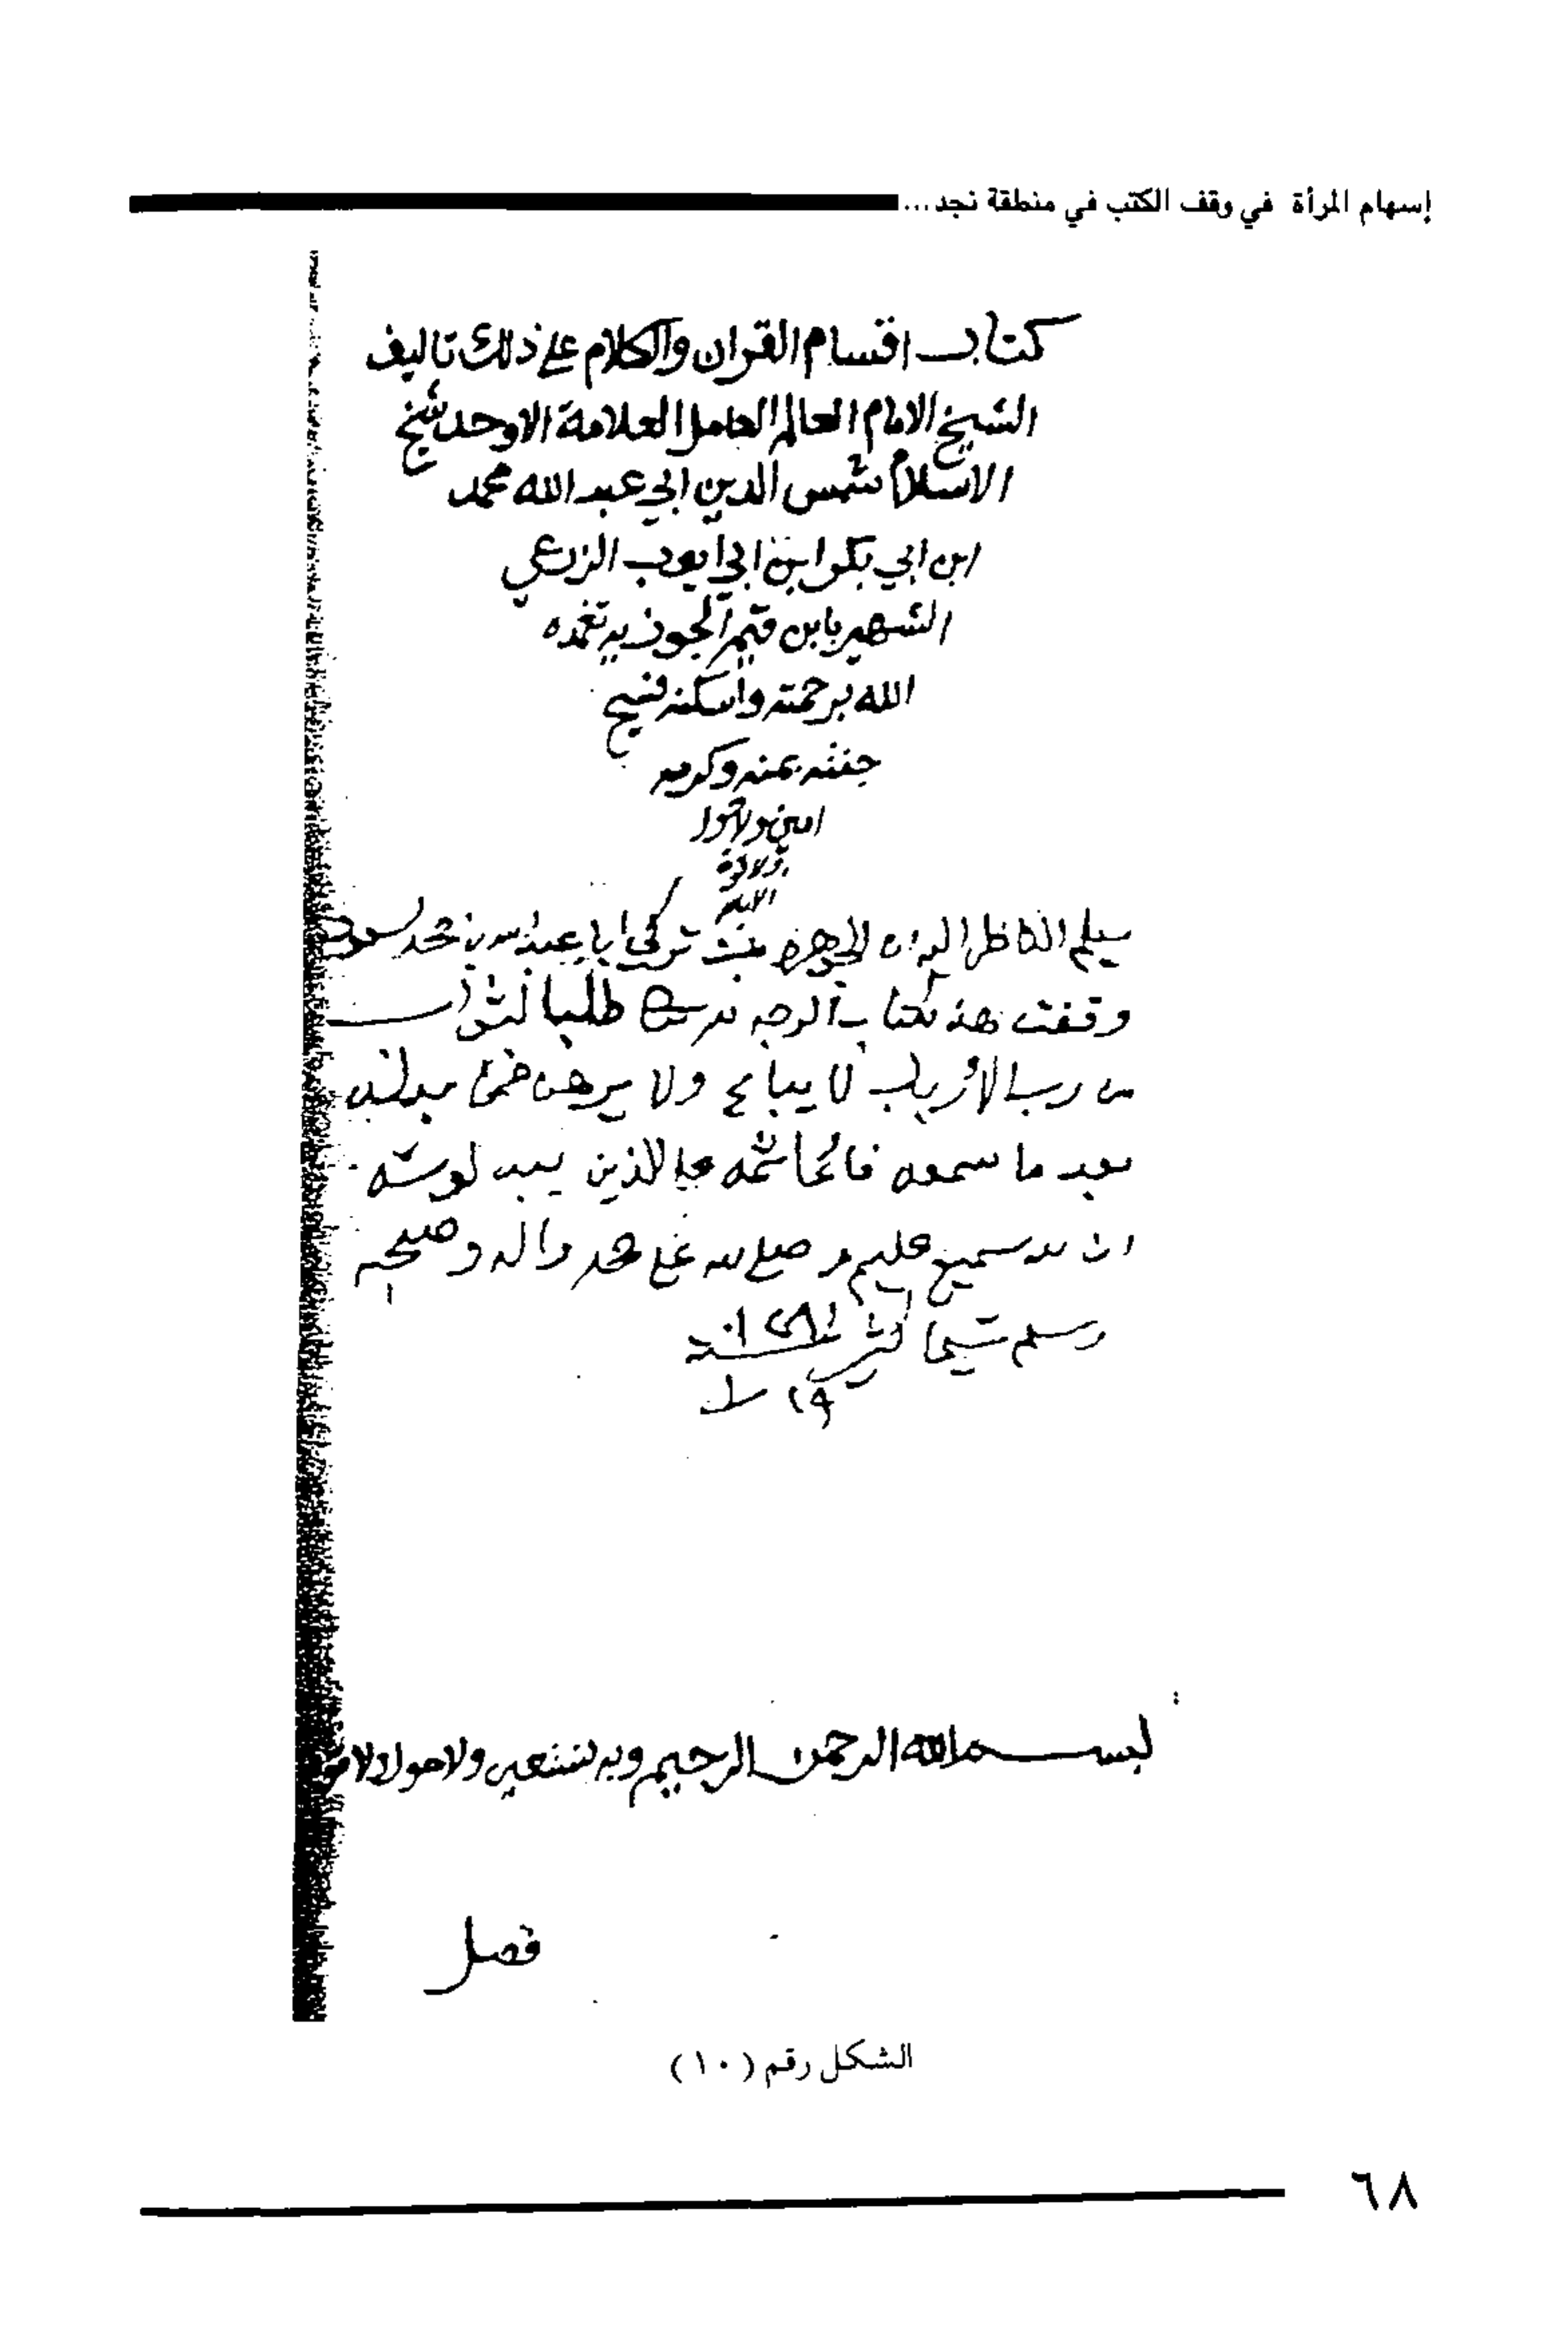 إسهام المرأة في وقف الكتب في منطقة نجد...
كتاب اقسام القران والكلام على ذلك تاليف
الشيخ الامام العالم العامل العلامة الاوحد شيخ
الاسلام شمس الدين ابي عبد الله محمد
ابن ابي بكر ابن ابي ايوب الزرعي
الشهير بابن قيم الجوزيه تغمده
الله برحمته واسكنه فسيح
جنته بمنه وكرمه
امين ولا حول
ولا قوة
الا بالله
يعلم الناظر اليه ان الجوهره بنت تركي ابن عبد الله بن محمد السعود
وقفت هذ الكتاب لوجه الله طلبا لثواب
من رب الارباب لا يباع ولا يرهن فمن بدله
بعد ما سمعه فانما اثمه على الذين يبدلونه
ان الله سميع عليم وصلى الله على محمد واله وصحبه
وسلم
بسم الله الرحمن الرحيم وبه نستعين ولا حول ولا قوة
فصل
الشكل رقم (١٠)
٦٨